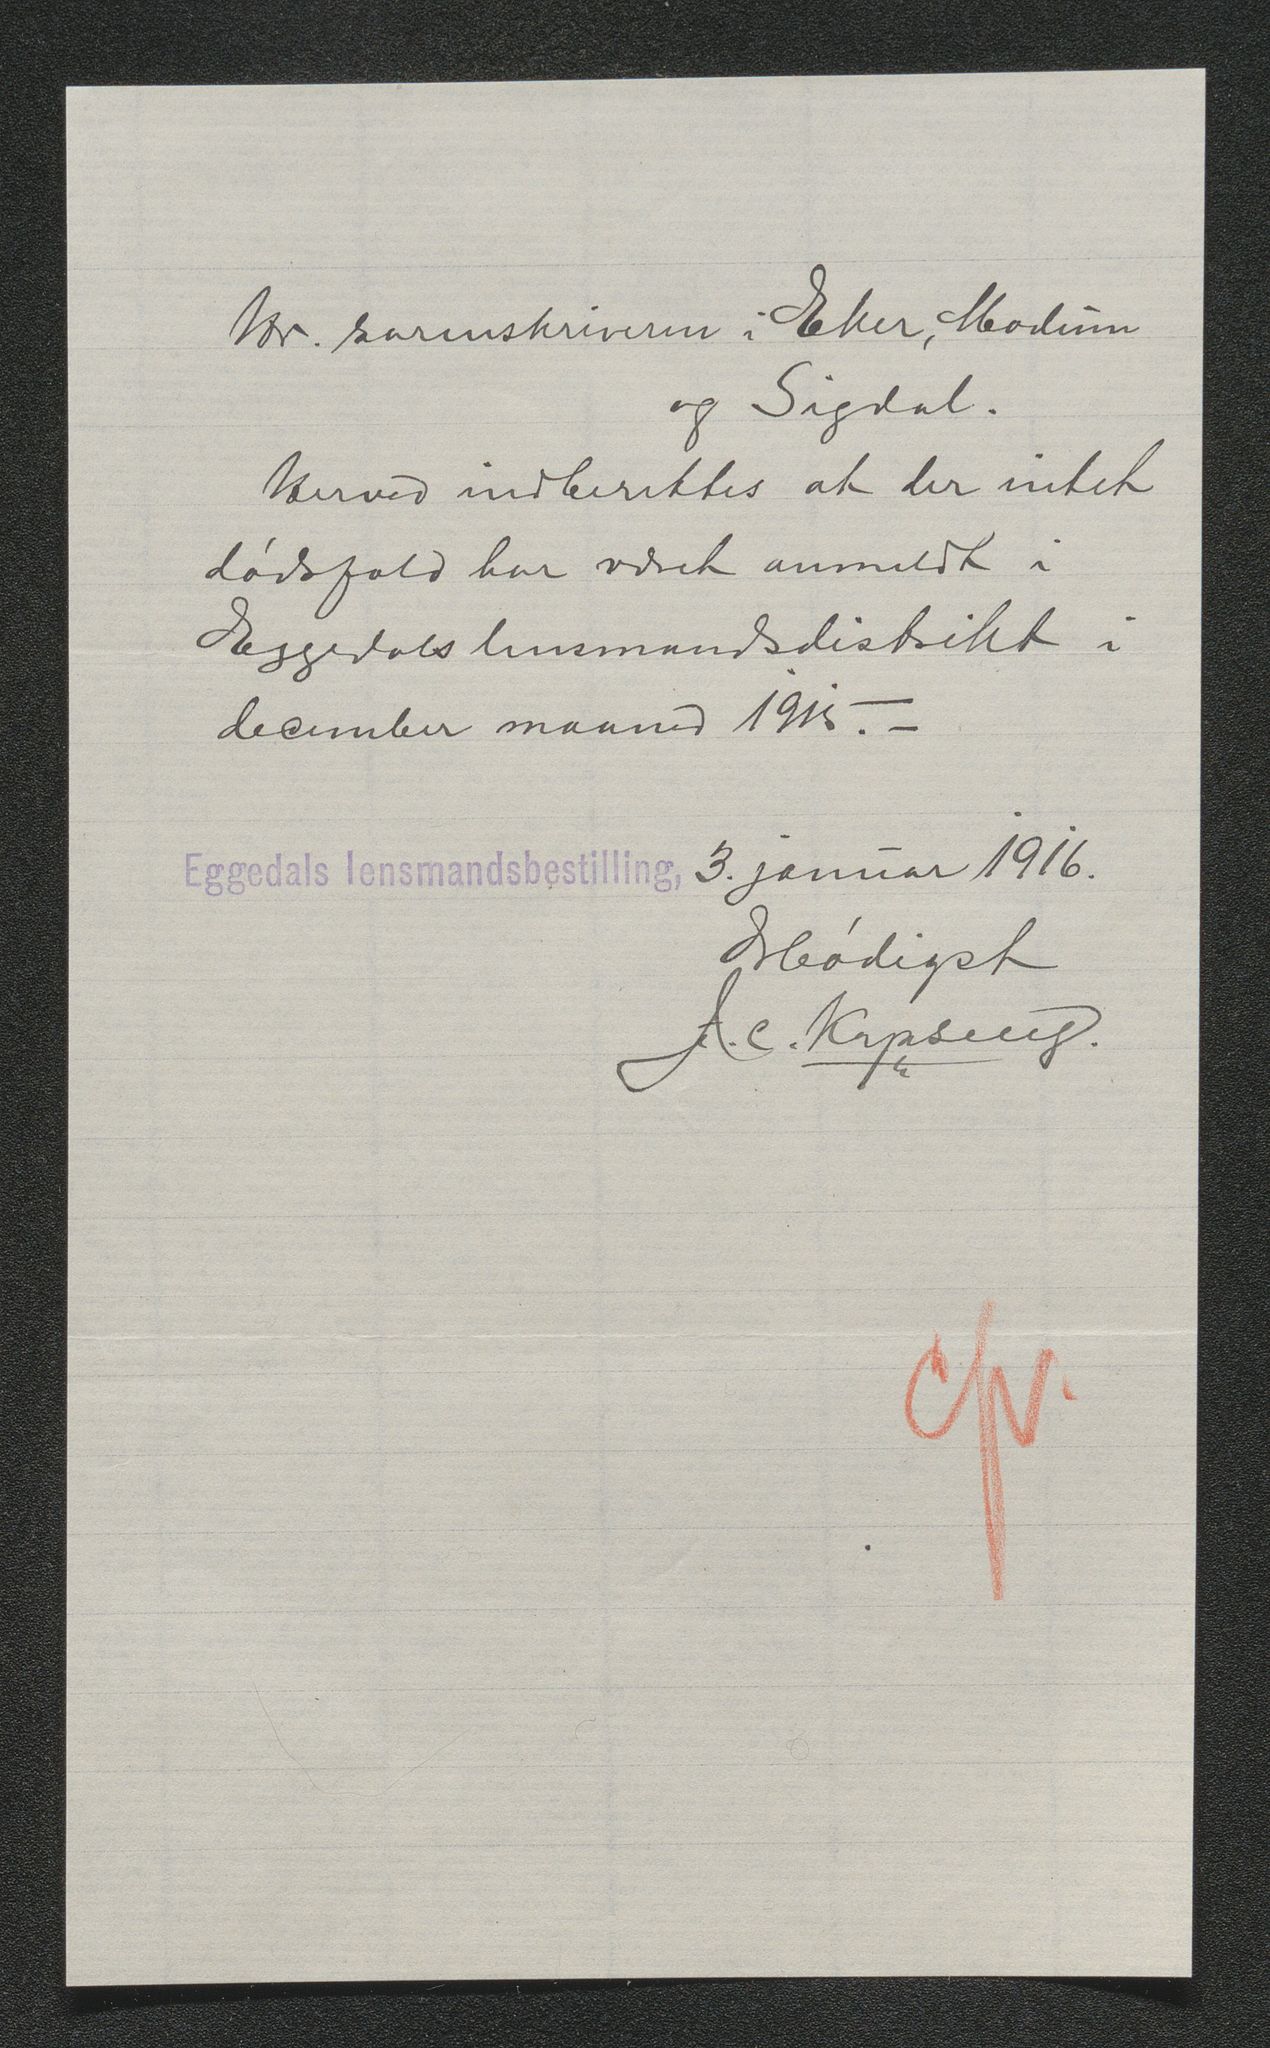 Hr. sorenskriveren i Eker, Modum
og Sigdal.
Herved indberettes at der intet
dödsfald har været anmeldt i
Eggedals lensmandsdistrikt i
december maaned 1915. –
Eggedals lensmandsbestilling, 3. januar 1916.
Ærbödigst
J. C. Kopseng.